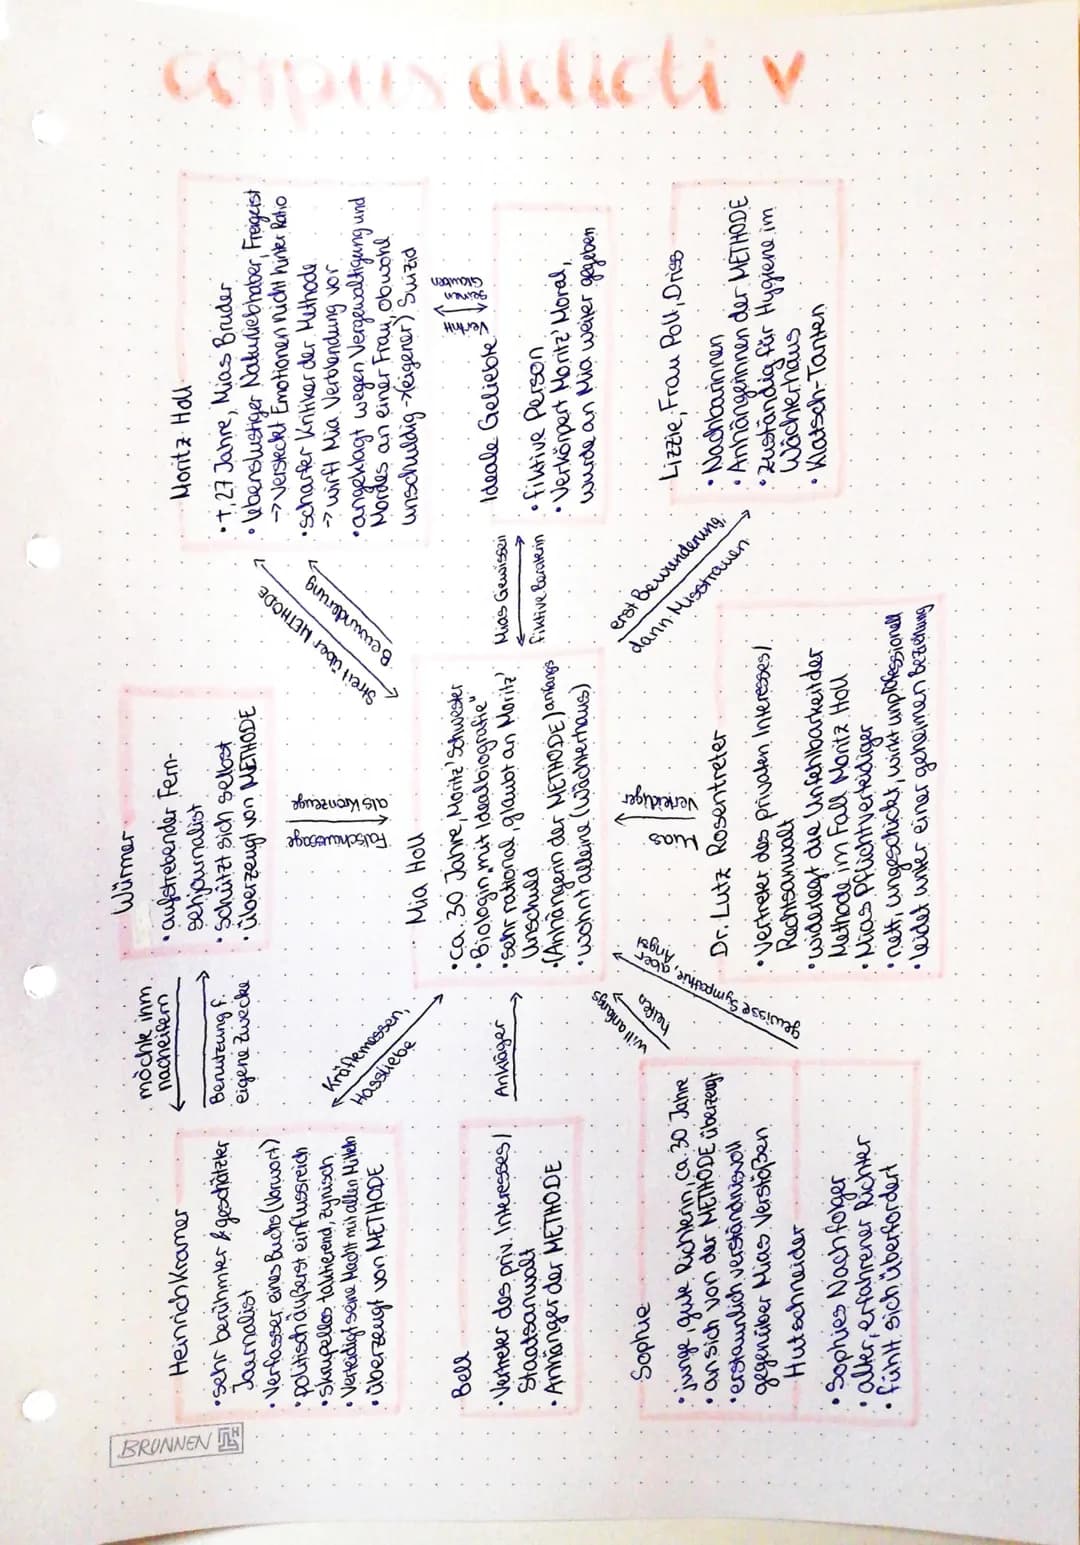 corpus delicti
BRUNNEN
Heinrich Kramer
• sehr berühmter & geschätzter
Journalist
• Verfasser eines Buchs (Vorwort)
• politisch äußerst einflussreich
• skrupellos taktierend, zynisch
• Verteidigt seine Macht mit allen Mitteln
• überzeugt von METHODE
möchte ihm
nacheifern
Benutzung f.
eigene Zwecke
Würmer
• aufstrebender Fern-
sehjournalist
• schützt sich selbst
• überzeugt von METHODE
Moritz Holl
• †, 27 Jahre, Mias Bruder
• lebenslustiger Naturliebhaber, Freigeist
-> versteckt Emotionen nicht hinter Ratio
• scharfer Kritiker der Methode
-> wirft Mia Verblendung vor
• angeklagt wegen Vergewaltigung und
Mordes an einer Frau, obwohl
unschuldig -> (eigener) Suizid
Streit über METHODE
Bewunderung
Falschaussage
als Kronzeuge
Kräftemessen,
Hassliebe
Bell
• Vertreter des priv. Interesses /
Staatsanwalt
• Anhänger der METHODE
Ankläger
Mia Holl
• ca. 30 Jahre, Moritz' Schwester
• Biologin mit „Idealbiografie"
• sehr rational, glaubt an Moritz'
Unschuld
• (Anhängerin der METHODE) anfangs
• wohnt alleine (Wächterhaus)
Mias Gewissen
fiktive Beraterin
Ideale Geliebte
• fiktive Person
• Verkörpert Moritz' Moral,
wurde an Mia weiter gegeben
Vertritt
seinen
Glauben
Sophie
• junge, gute Richterin, ca. 30 Jahre
• an sich von der METHODE überzeugt
• erstaunlich verständnisvoll
gegenüber Mias Verstößen
will anfangs
helfen
Hutschneider
• Sophies Nachfolger
• alter, erfahrener Richter
• fühlt sich überfordert
gewisse Sympathie, aber
Angst
Mias
Verteidiger
Dr. Lutz Rosentreter
• Vertreter des privaten Interesses /
Rechtsanwalt
• widerlegt die Unfehlbarkeit der
Methode im Fall Moritz Holl
• Mias Pflichtverteidiger
• nett, ungeschickt, wirkt unprofessionell
• leidet unter einer geheimen Beziehung
erst Bewunderung,
dann Misstrauen
Lizzie, Frau Poll, Driss
• Nachbarinnen
• Anhängerinnen der METHODE
• zuständig für Hygiene im
Wächterhaus
• Klatsch-Tanten